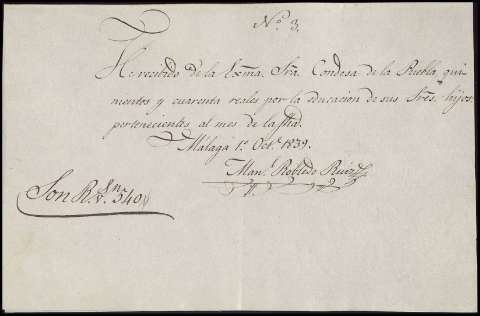 N.º 3.
He recibido de la Exma. Sra. Condesa de la Puebla, qui-
nientos y cuarenta reales por la educacion de sus tres hijos,
pertenecientes al mes de la fha.
Málaga 1.º Oct.e 1839.
Man.l Robledo Ruiz
Son R.s v.n 540